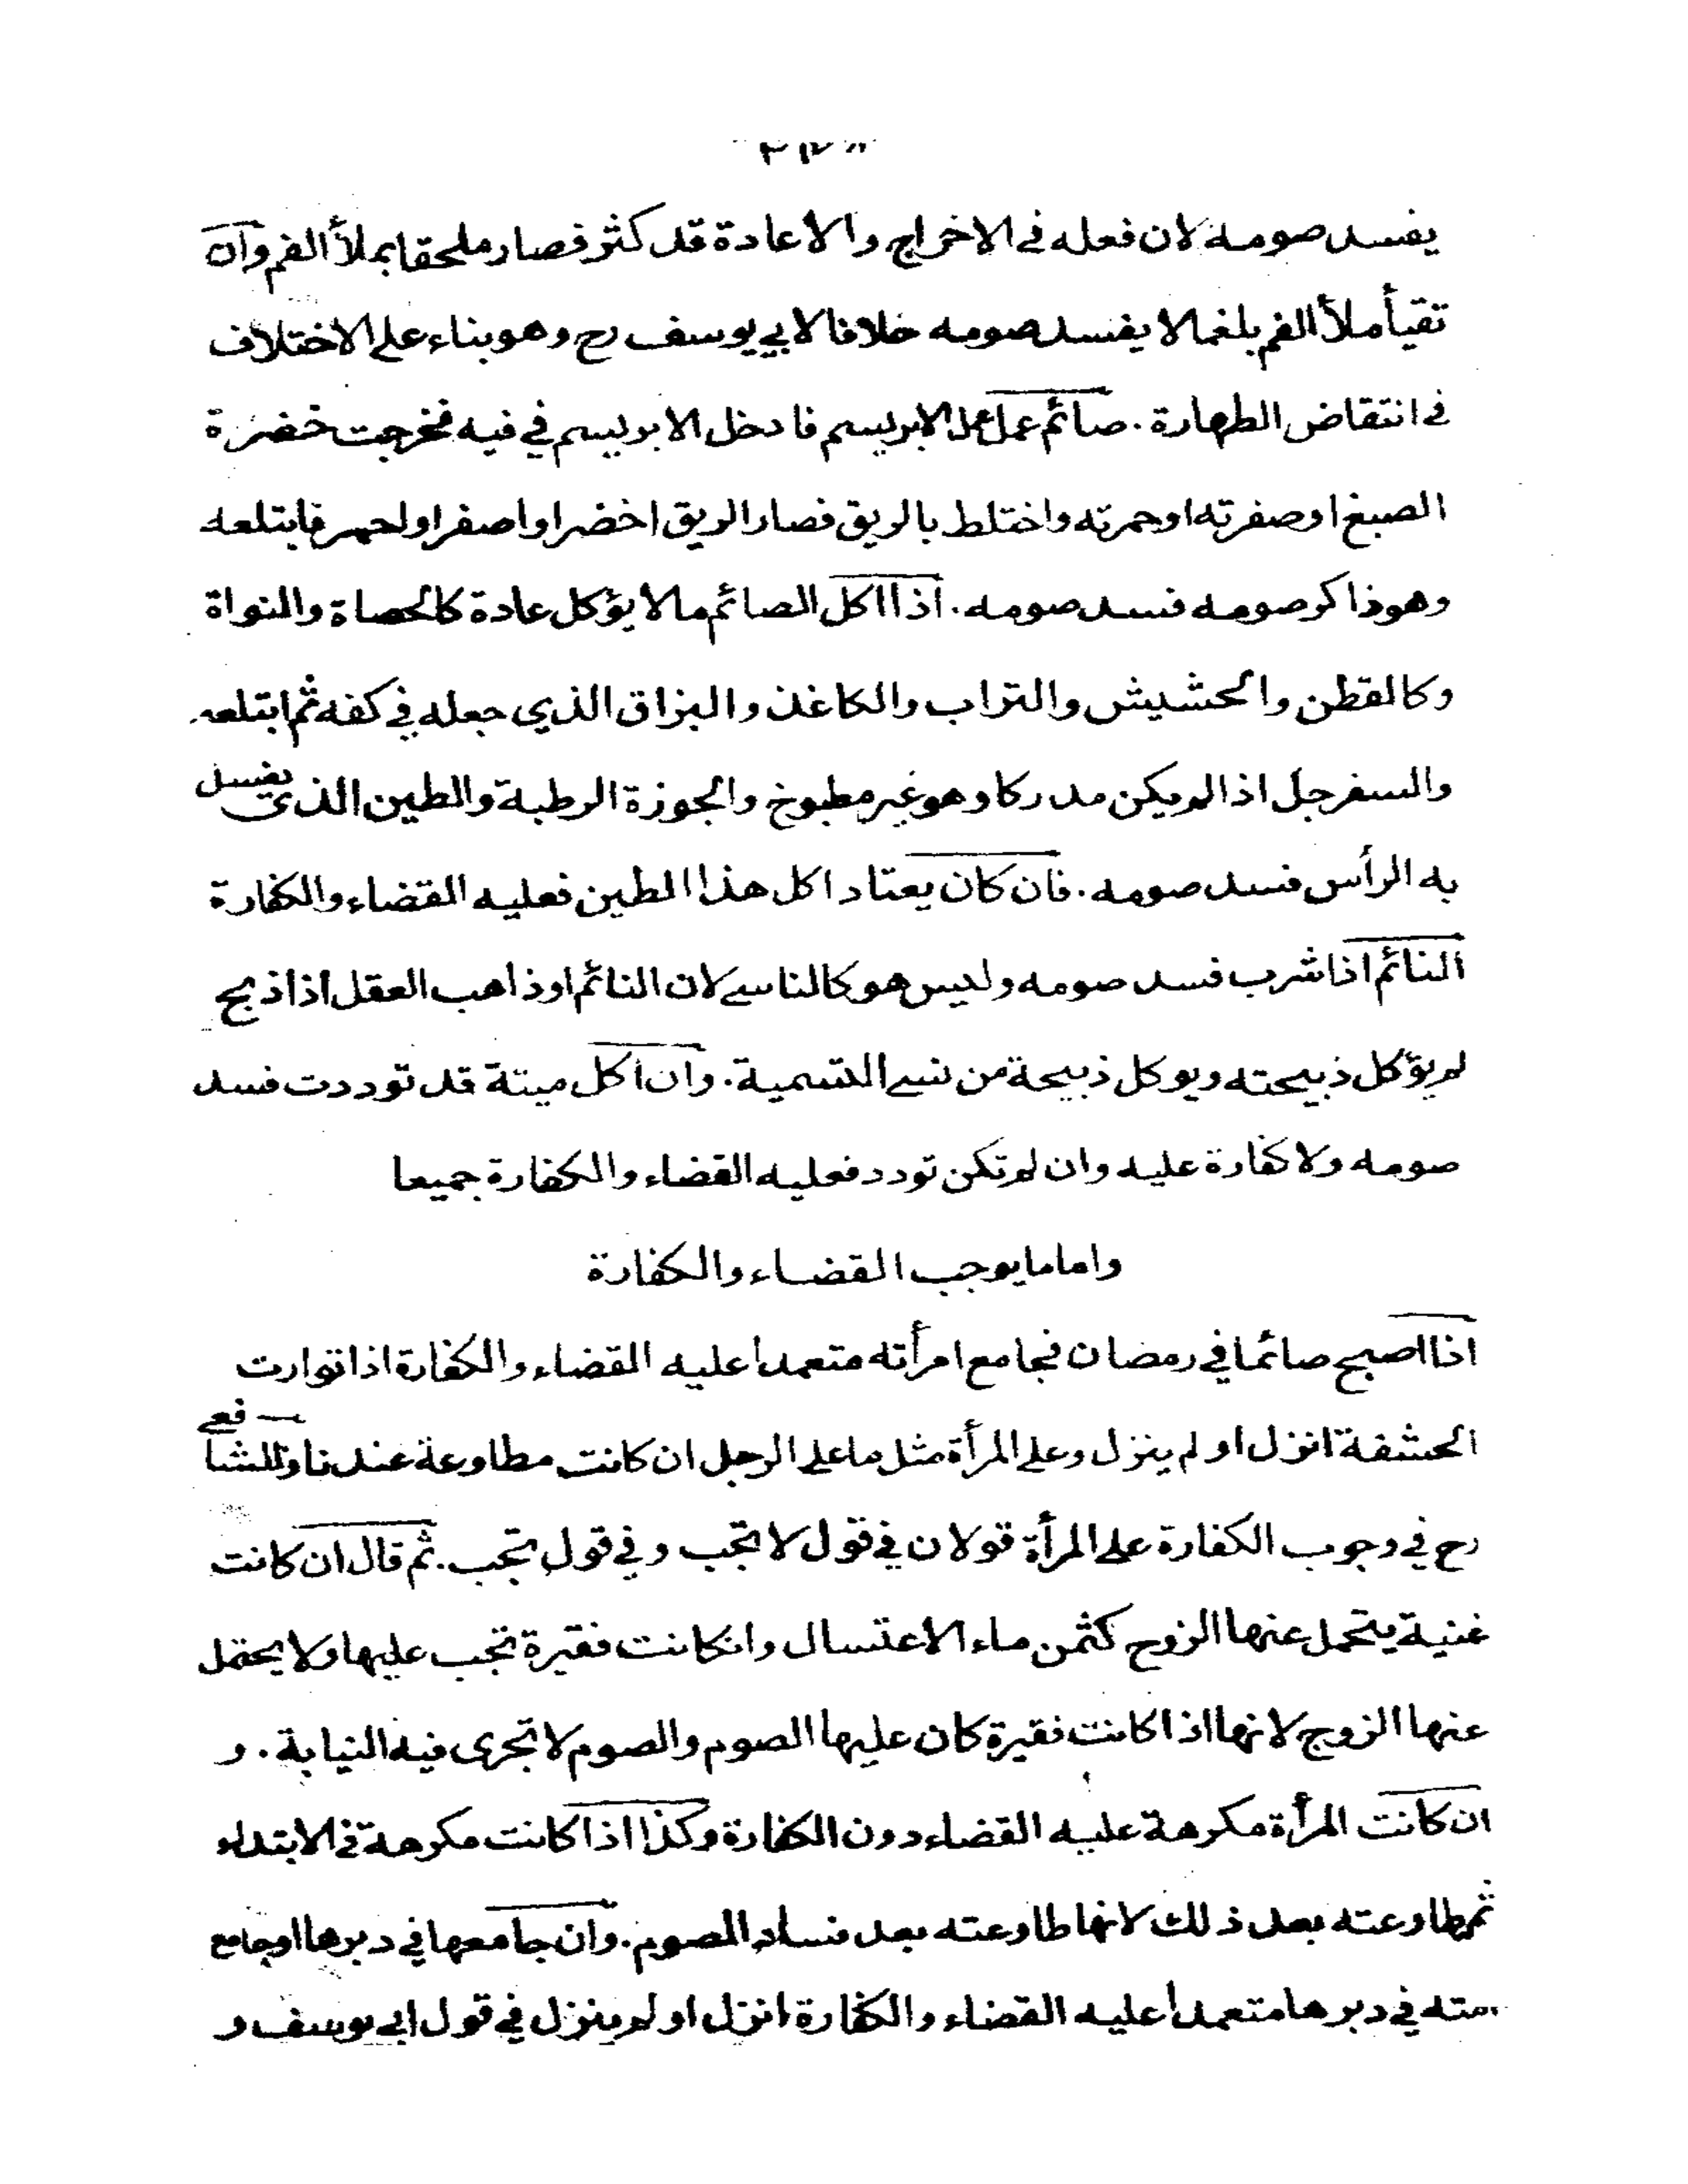 يفسد صومه لان فعله فى الاخراج والاعادة قد كثر فصار ملحقا بملأ الفم وان
تقيأ ملأ الفم بلغما لا يفسد صومه خلافا لابي يوسف رح وهو بناء على الاختلاف
فى انتقاض الطهارة . صائم عمل عمل الابريسم فادخل الابريسم في فيه فخرجت خضرة
الصبغ او صفرته او حمرته واختلط بالريق فصار الريق اخضر او اصفر او احمر فابتلعه
وهو ذاكر صومه فسد صومه . اذا اكل الصائم ما لا يؤكل عادة كالحصاة والنواة
وكالقطن والحشيش والتراب والكاغذ والبزاق الذي جعله في كفه ثم ابتلعه
والسفرجل اذا لم يكن مدركا وهو غير مطبوخ والجوزة الرطبة والطين الذى يغسل
به الرأس فسد صومه . فان كان يعتاد اكل هذا الطين فعليه القضاء والكفارة
النائم اذا شرب فسد صومه وليس هو كالناسى لان النائم او ذاهب العقل اذا ذبح
لم يؤكل ذبيحته ويوكل ذبيحة من نسى التسمية . وان اكل ميتة قد توددت فسد
صومه ولا كفارة عليه وان لم تكن تودد فعليه القضاء والكفارة جميعا
واما ما يوجب القضاء والكفارة
اذا اصبح صائما في رمضان فجامع امرأته متعمدا عليه القضاء والكفارة اذا توارت
الحشفة انزل او لم ينزل وعلى المرأة مثل ما على الرجل ان كانت مطاوعة عندنا وللشافعى
رح في وجوب الكفارة على المرأة قولان في قول لا تجب وفي قول تجب . ثم قال ان كانت
غنية يتحمل عنها الزوج كثمن ماء الاغتسال وانكانت فقيرة تجب عليها ولا يحتمل
عنها الزوج لانها اذا كانت فقيرة كان عليها الصوم والصوم لا تجرى فيه النيابة . و
ان كانت المرأة مكرهة عليه القضاء دون الكفارة وكذا اذا كانت مكرهة فى الابتداء
ثم طاوعته بعد ذلك لانها طاوعته بعد فساد الصوم . وان جامعها في دبرها او جامع
في دبرها متعمدا عليه القضاء والكفارة انزل او لم ينزل في قول ابى يوسف و